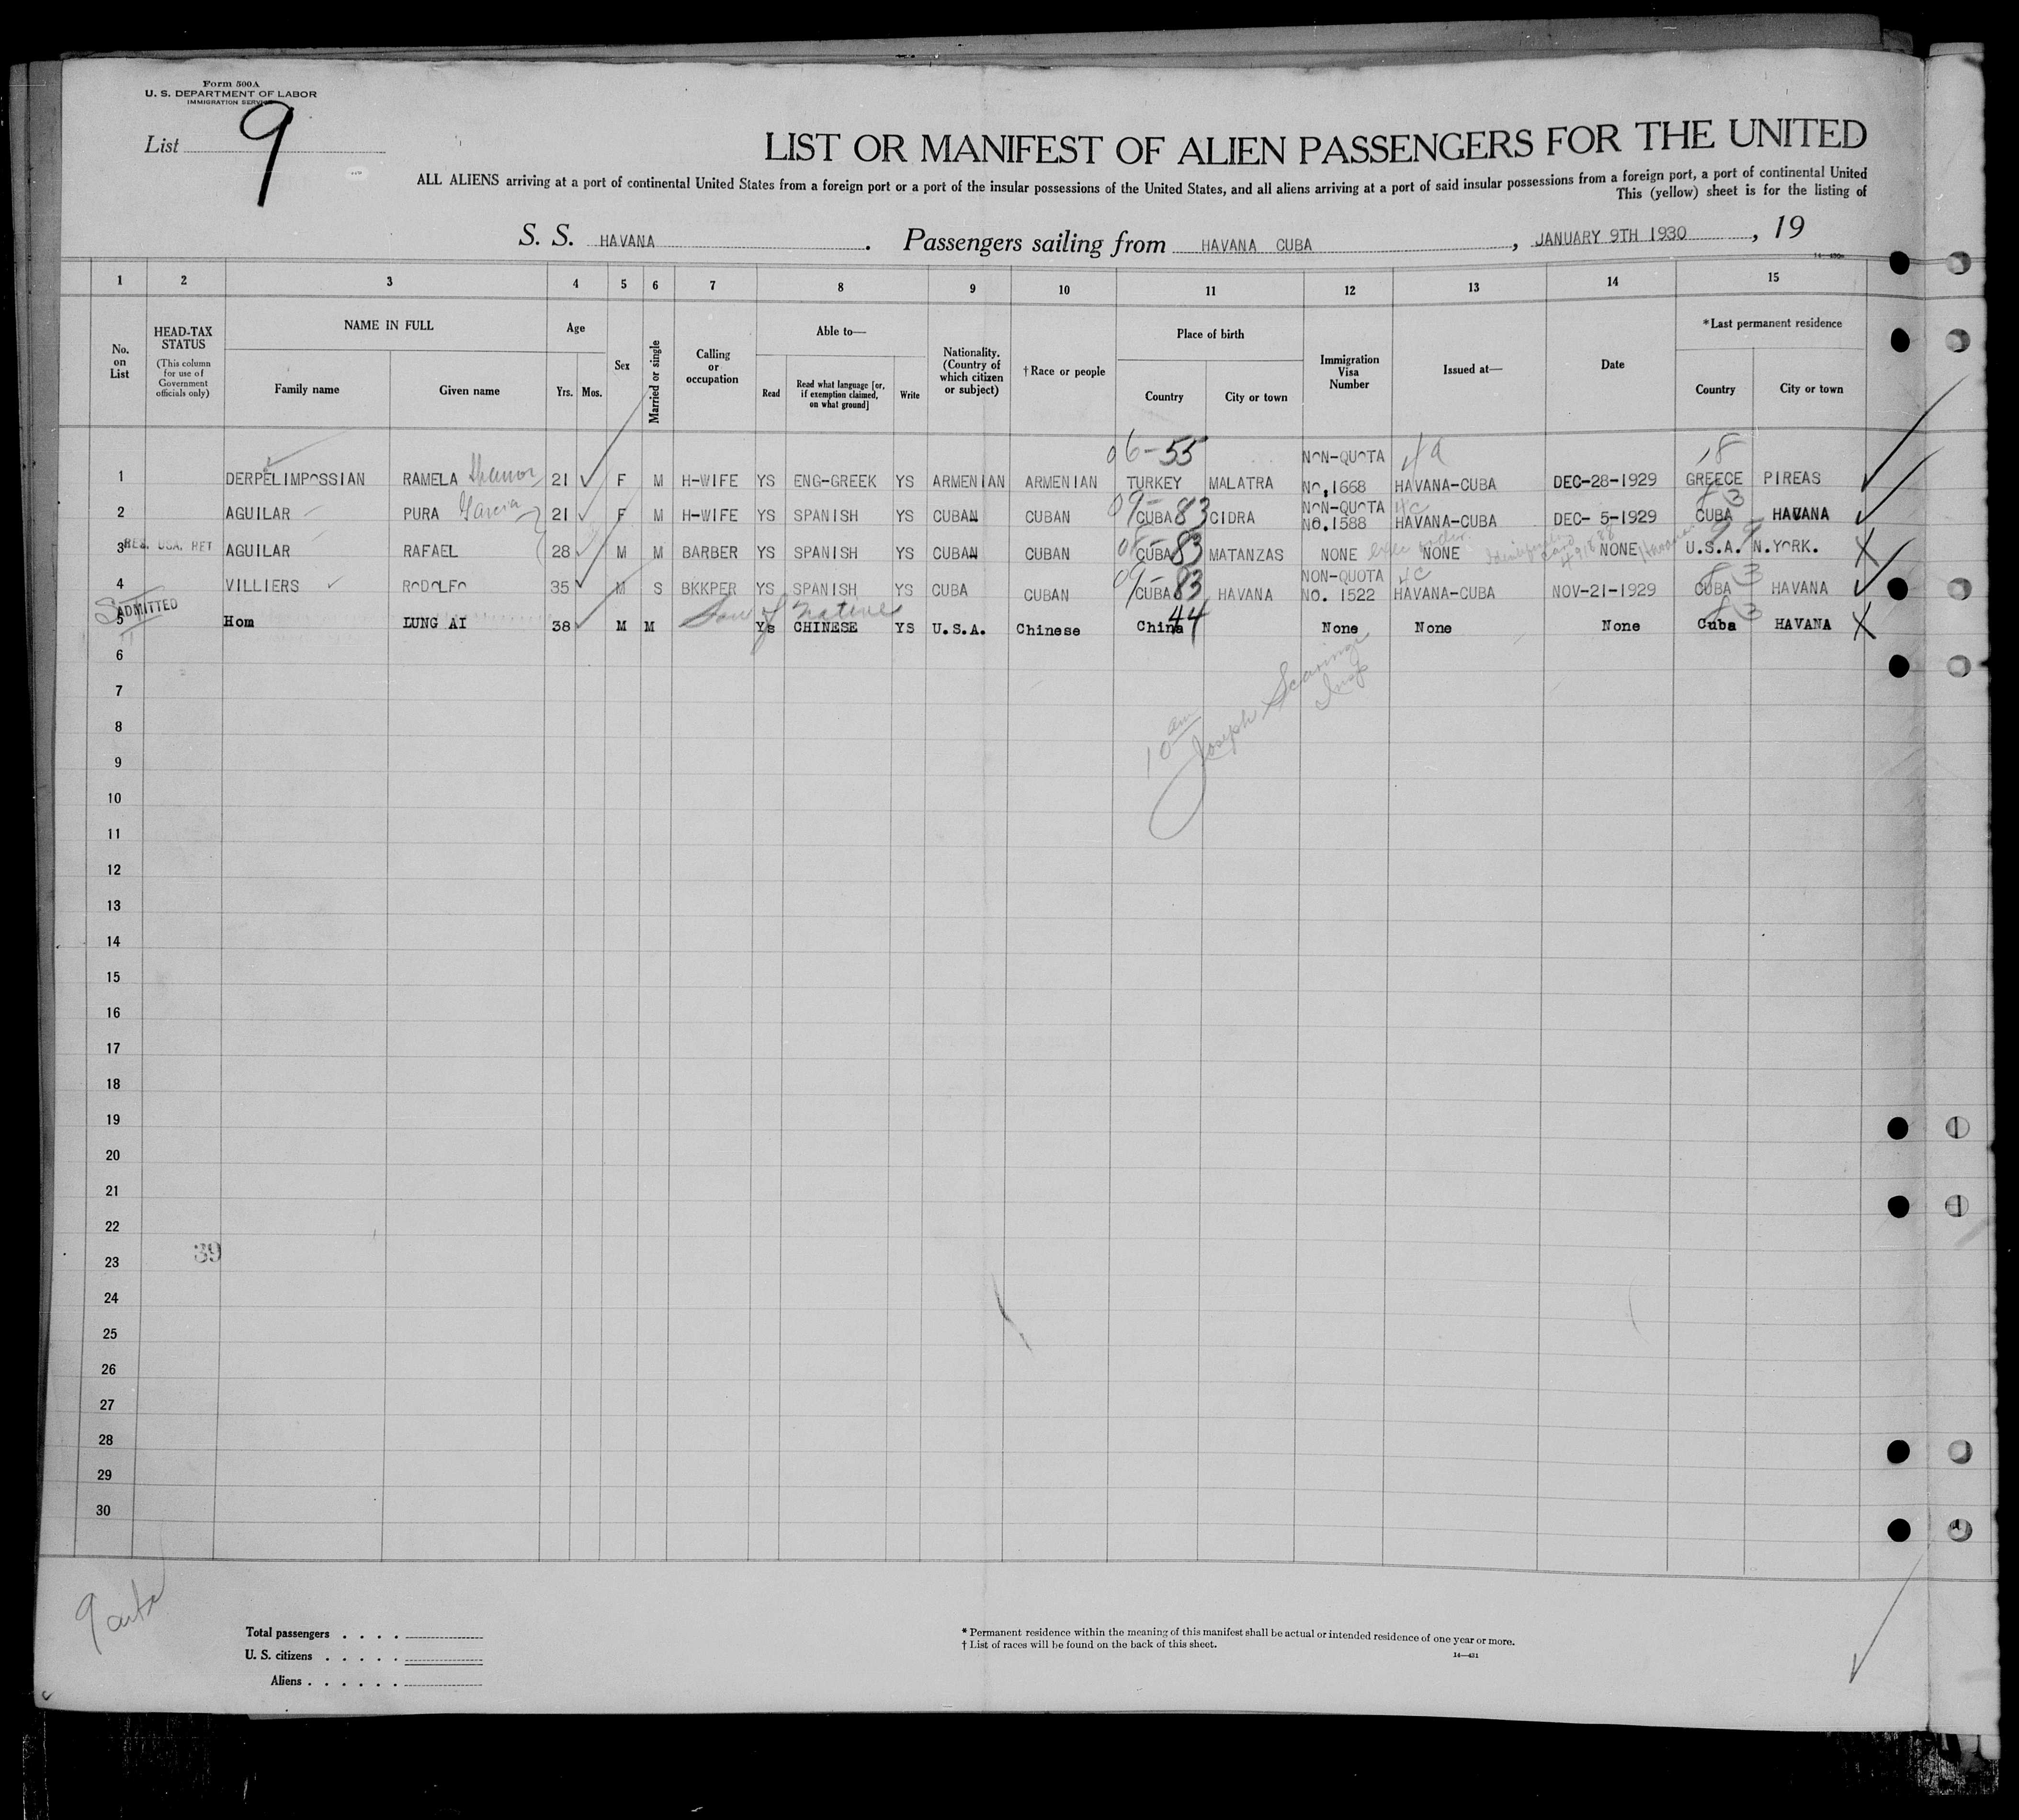 Form 500A
U. S. DEPARTMENT OF LABOR
IMMIGRATION SERVICE
List 9
LIST OR MANIFEST OF ALIEN PASSENGERS FOR THE UNITED
ALL ALIENS arriving at a port of continental United States from a foreign port or a port of the insular possessions of the United States, and all aliens arriving at a port of said insular possessions from a foreign port, a port of continental United
This (yellow) sheet is for the listing of
S. S. HAVANA . Passengers sailing from HAVANA CUBA , JANUARY 9TH 1930 , 19
1 2 3 4 5 6 7 8 9 10 11 12 13 14 15
No. on List
HEAD-TAX STATUS
(This column for use of Government officials only)
NAME IN FULL
Family name
Given name
Age
Yrs.
Mos.
Sex
Married or single
Calling or occupation
Able to—
Read
Read what language [or, if exemption claimed, on what ground]
Write
Nationality. (Country of which citizen or subject)
†Race or people
Place of birth
Country
City or town
Immigration Visa Number
Issued at—
Date
*Last permanent residence
Country
City or town
06-55 NON-QUOTA 4a 18
1 DERPELIMPOSSIAN RAMELA 21 F M H-WIFE YS ENG-GREEK YS ARMENIAN ARMENIAN TURKEY MALATRA No,1668 HAVANA-CUBA DEC-28-1929 GREECE PIREAS
09-83 NON-QUOTA 4c 83
2 AGUILAR PURA Garcia 21 F M H-WIFE YS SPANISH YS CUBAN CUBAN CUBA CIDRA NO.1588 HAVANA-CUBA DEC- 5-1929 CUBA HAVANA
3 RES. USA. RET AGUILAR RAFAEL 28 M M BARBER YS SPANISH YS CUBAN CUBAN CUBA 83 MATANZAS NONE NONE NONE U.S.A. 99 N.YORK.
09-83 NON-QUOTA 4c 83
4 VILLIERS RODOLFO 35 M S BKKPER YS SPANISH YS CUBA CUBAN CUBA HAVANA NO. 1522 HAVANA-CUBA NOV-21-1929 CUBA HAVANA
ADMITTED Son of Native 44 83
5 Hom LUNG AI 38 M M Ys CHINESE YS U.S.A. Chinese China None None None Cuba HAVANA
6
7
8
9
10
11
12
13
14
15
16
17
18
19
20
21
22
23
24
25
26
27
28
29
30
10 am
Joseph Scaringi
Insp
39
Total passengers . . . .
U. S. citizens . . . . .
Aliens . . . . . .
* Permanent residence within the meaning of this manifest shall be actual or intended residence of one year or more.
† List of races will be found on the back of this sheet.
14—431